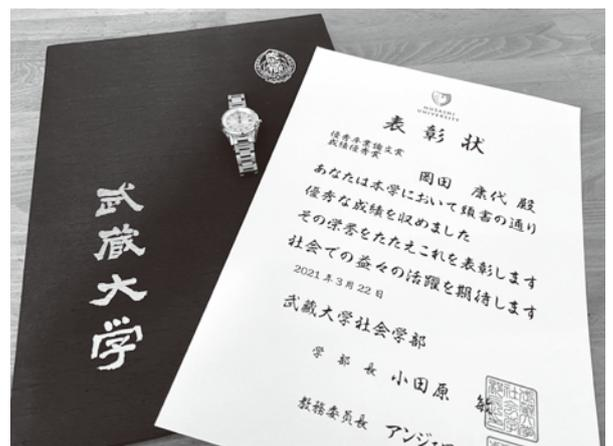 武蔵大学
MUSASHI
UNIVERSITY
表彰状
優秀卒業論文賞
成績優秀賞
岡田 康代 殿
あなたは本学において頭書の通り
優秀な成績を収めました
その栄誉をたたえこれを表彰します
社会での益々の活躍を期待します
2021年3月22日
武蔵大学社会学部
学部長 小田原 敏
教務委員長 アンジェ